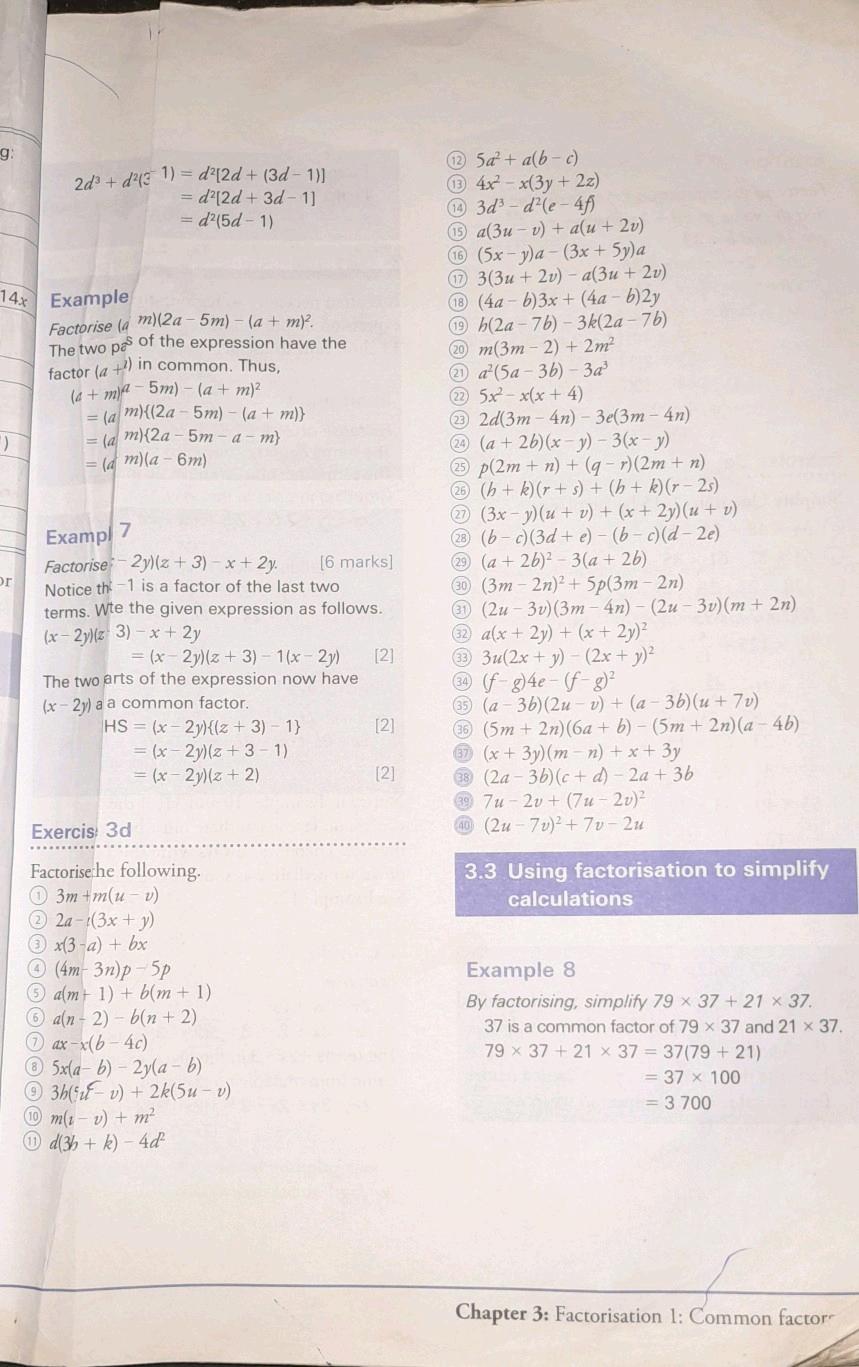 g:
14x
)
or
2d³ + d²(3 - 1) = d²[2d + (3d - 1)]
= d²[2d + 3d - 1]
= d²(5d - 1)
Example
Factorise (a m)(2a - 5m) - (a + m)².
The two of the expression have the
factor (a + in common. Thus,
(a + m) - 5m) - (a + m)²
= (a m){(2a - 5m) - (a + m)}
= (a m){2a - 5m - a - m}
= (a m)(a - 6m)
Exampl 7
Factorise - 2y)(z + 3) - x + 2y. [6 marks]
Notice th -1 is a factor of the last two
terms. W te the given expression as follows.
(x - 2y)(z 3) - x + 2y
= (x - 2y)(z + 3) - 1(x - 2y) [2]
The two arts of the expression now have
(x - 2y) a a common factor.
HS = (x - 2y){(z + 3) - 1} [2]
= (x - 2y)(z + 3 - 1)
= (x - 2y)(z + 2) [2]
Exercis 3d
Factorise he following.
① 3m + m(u - v)
② 2a - (3x + y)
③ x(3 - a) + bx
④ (4m - 3n)p - 5p
⑤ a(m + 1) + b(m + 1)
⑥ a(n - 2) - b(n + 2)
⑦ ax - x(b - 4c)
⑧ 5x(a - b) - 2y(a - b)
⑨ 3h(5u - v) + 2k(5u - v)
⑩ m( - v) + m²
⑪ d(3h + k) - 4d²
⑫ 5a² + a(b - c)
⑬ 4x² - x(3y + 2z)
⑭ 3d³ - d²(e - 4f)
⑮ a(3u - v) + a(u + 2v)
⑯ (5x - y)a - (3x + 5y)a
⑰ 3(3u + 2v) - a(3u + 2v)
⑱ (4a - b)3x + (4a - b)2y
⑲ h(2a - 7b) - 3k(2a - 7b)
⑳ m(3m - 2) + 2m²
㉑ a²(5a - 3b) - 3a³
㉒ 5x² - x(x + 4)
㉓ 2d(3m - 4n) - 3e(3m - 4n)
㉔ (a + 2b)(x - y) - 3(x - y)
㉕ p(2m + n) + (q - r)(2m + n)
㉖ (h + k)(r + s) + (h + k)(r - 2s)
㉗ (3x - y)(u + v) + (x + 2y)(u + v)
㉘ (b - c)(3d + e) - (b - c)(d - 2e)
㉙ (a + 2b)² - 3(a + 2b)
㉚ (3m - 2n)² + 5p(3m - 2n)
㉛ (2u - 3v)(3m - 4n) - (2u - 3v)(m + 2n)
㉜ a(x + 2y) + (x + 2y)²
㉝ 3u(2x + y) - (2x + y)²
㉞ (f - g)4e - (f - g)²
㉟ (a - 3b)(2u - v) + (a - 3b)(u + 7v)
㊱ (5m + 2n)(6a + b) - (5m + 2n)(a - 4b)
㊲ (x + 3y)(m - n) + x + 3y
㊳ (2a - 3b)(c + d) - 2a + 3b
㊴ 7u - 2v + (7u - 2v)²
㊵ (2u - 7v)² + 7v - 2u
3.3 Using factorisation to simplify
calculations
Example 8
By factorising, simplify 79 × 37 + 21 × 37.
37 is a common factor of 79 × 37 and 21 × 37.
79 × 37 + 21 × 37 = 37(79 + 21)
= 37 × 100
= 3 700
Chapter 3: Factorisation 1: Common factors